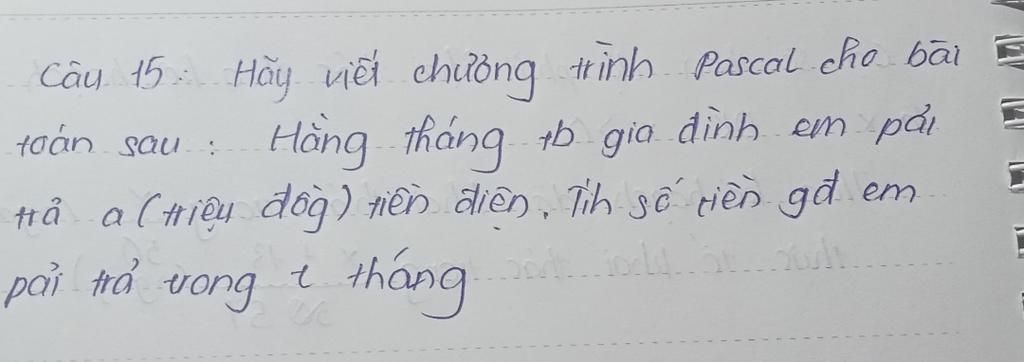 Câu 15: Hãy viết chương trình Pascal cho bài
toán sau: Hằng tháng tb gia đình em pải
trả a (triệu đồg) tiền điện. Tíh số tiền gđ em
pải trả trong t tháng